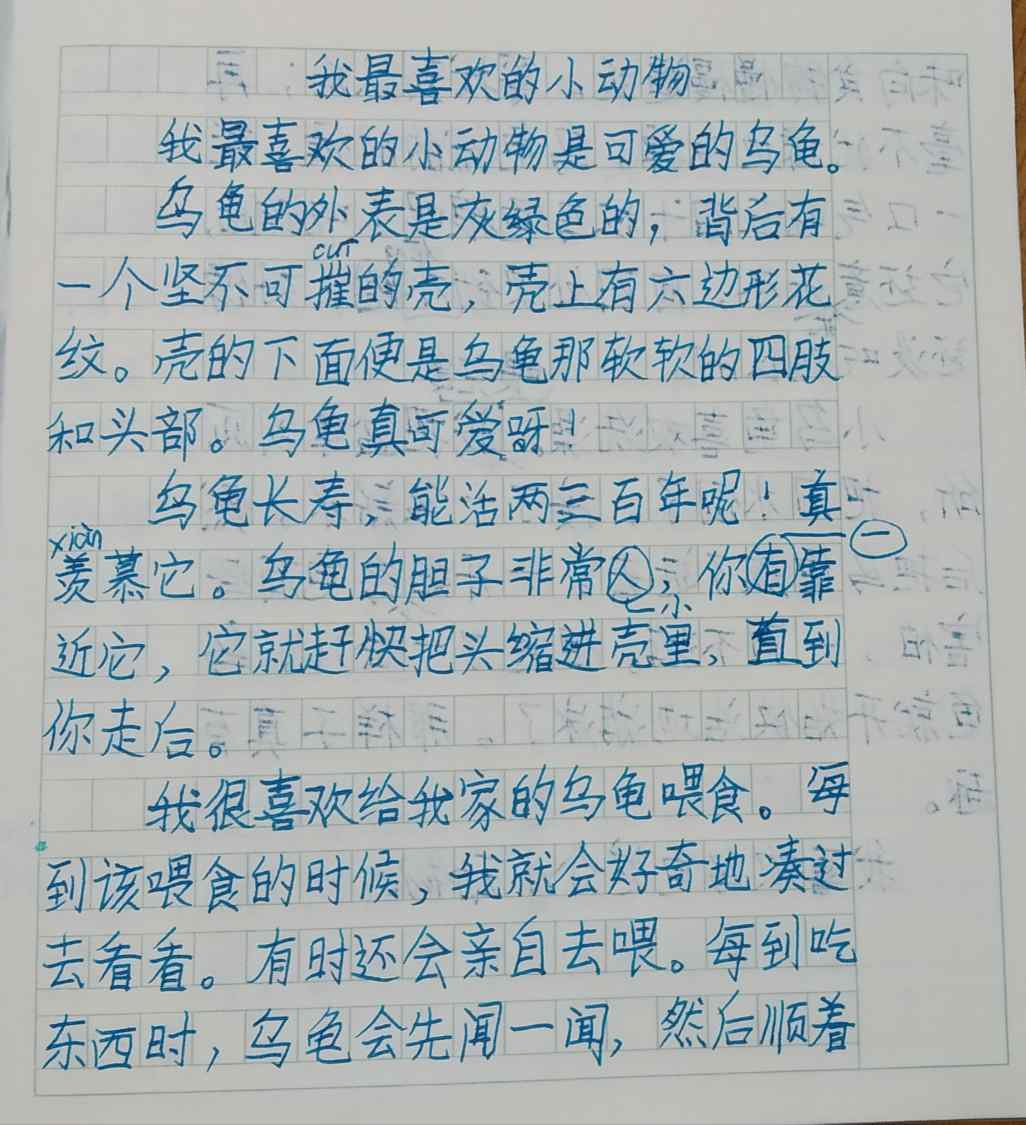 我最喜欢的小动物
我最喜欢的小动物是可爱的乌龟。
乌龟的外表是灰绿色的，背后有
cuī
一个坚不可摧的壳，壳上有六边形花
纹。壳的下面便是乌龟那软软的四肢
和头部。乌龟真可爱呀！
乌龟长寿，能活两三百年呢！真
xiàn
羡慕它。乌龟的胆子非常人，你有靠
小
一
近它，它就赶快把头缩进壳里，直到
你走后。
我很喜欢给我家的乌龟喂食。每
到该喂食的时候，我就会好奇地凑过
去看看。有时还会亲自去喂。每到吃
东西时，乌龟会先闻一闻，然后顺着